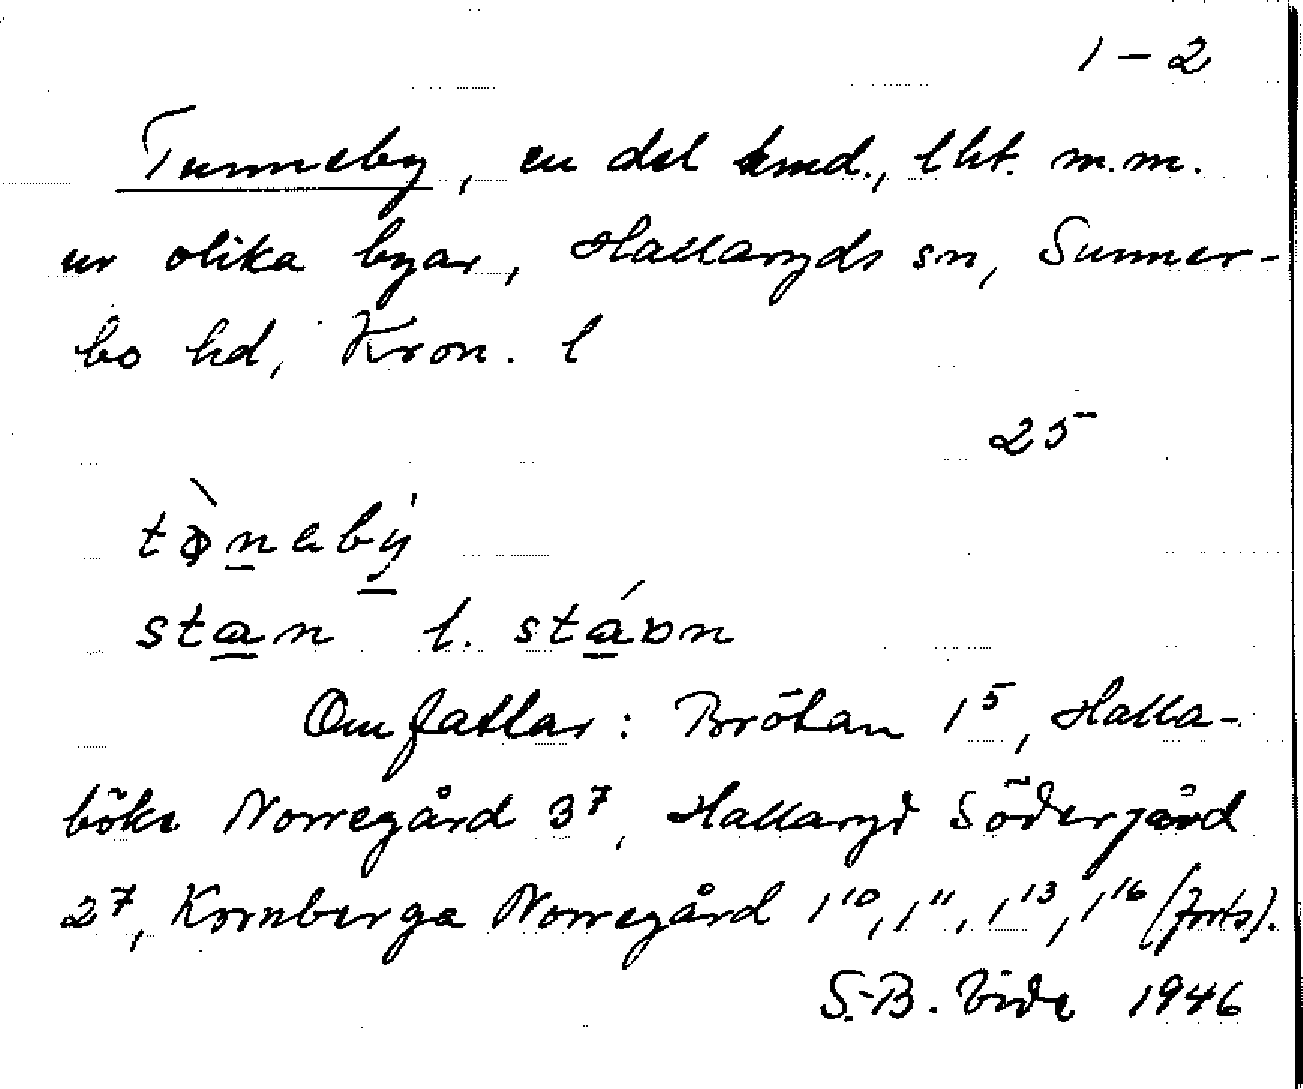 1-2
Tunneby, en del hmd., lht. m.m.
ur olika byar, Hallaryds sn, Sunner-
bo hd, Kron. l
25
tònabý
stan l. stáon
Omfattar: Brötan 1⁵, Halla-
böke Norregård 3⁷, Hallaryd Södergård
2⁷, Kornberga Norregård 1¹⁰, 1¹¹, 1¹³, 1¹⁶ (forts).
S.-B. Vide 1946